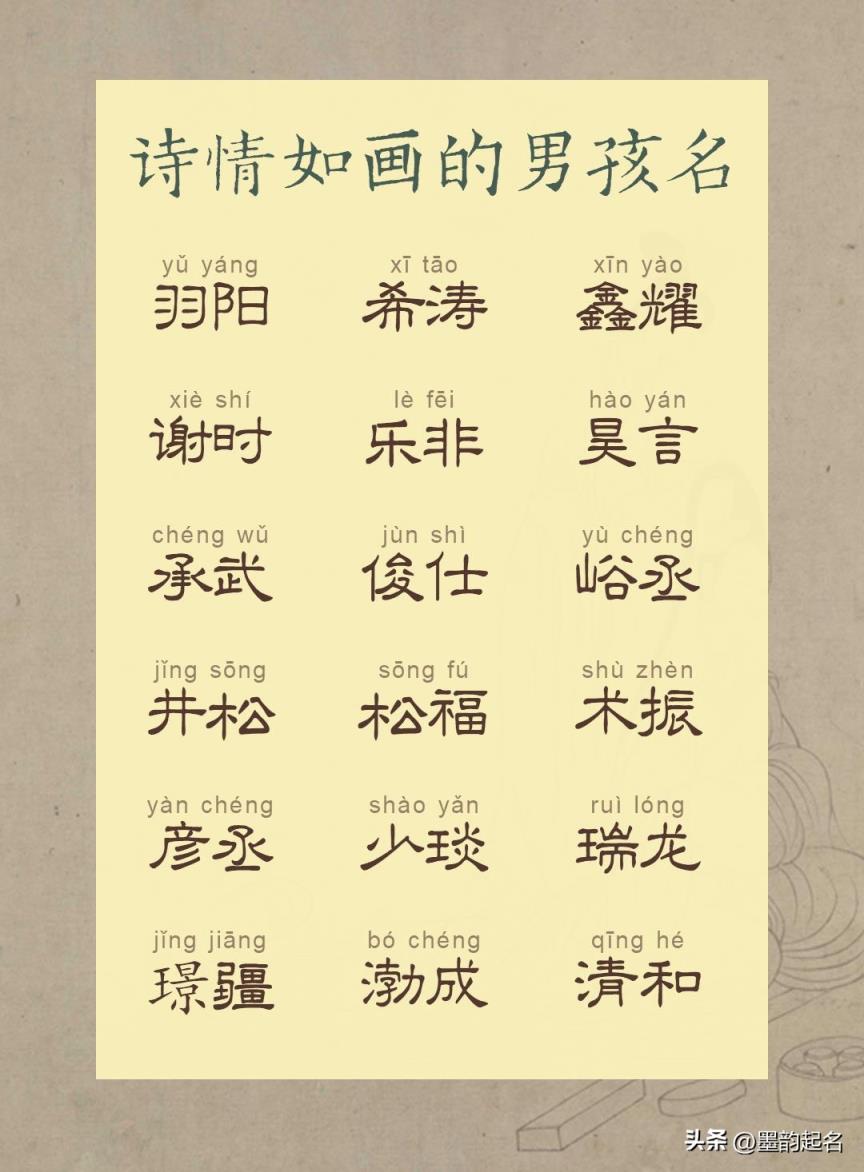 诗情如画的男孩名
yǔ yáng xī tāo xīn yào
羽阳 希涛 鑫耀
xiè shí lè fēi hào yán
谢时 乐非 昊言
chéng wǔ jùn shì yù chéng
承武 俊仕 峪丞
jǐng sōng sōng fú shù zhèn
井松 松福 术振
yàn chéng shào yǎn ruì lóng
彦丞 少琰 瑞龙
jǐng jiāng bó chéng qīng hé
璟疆 渤成 清和
头条 @墨韵起名